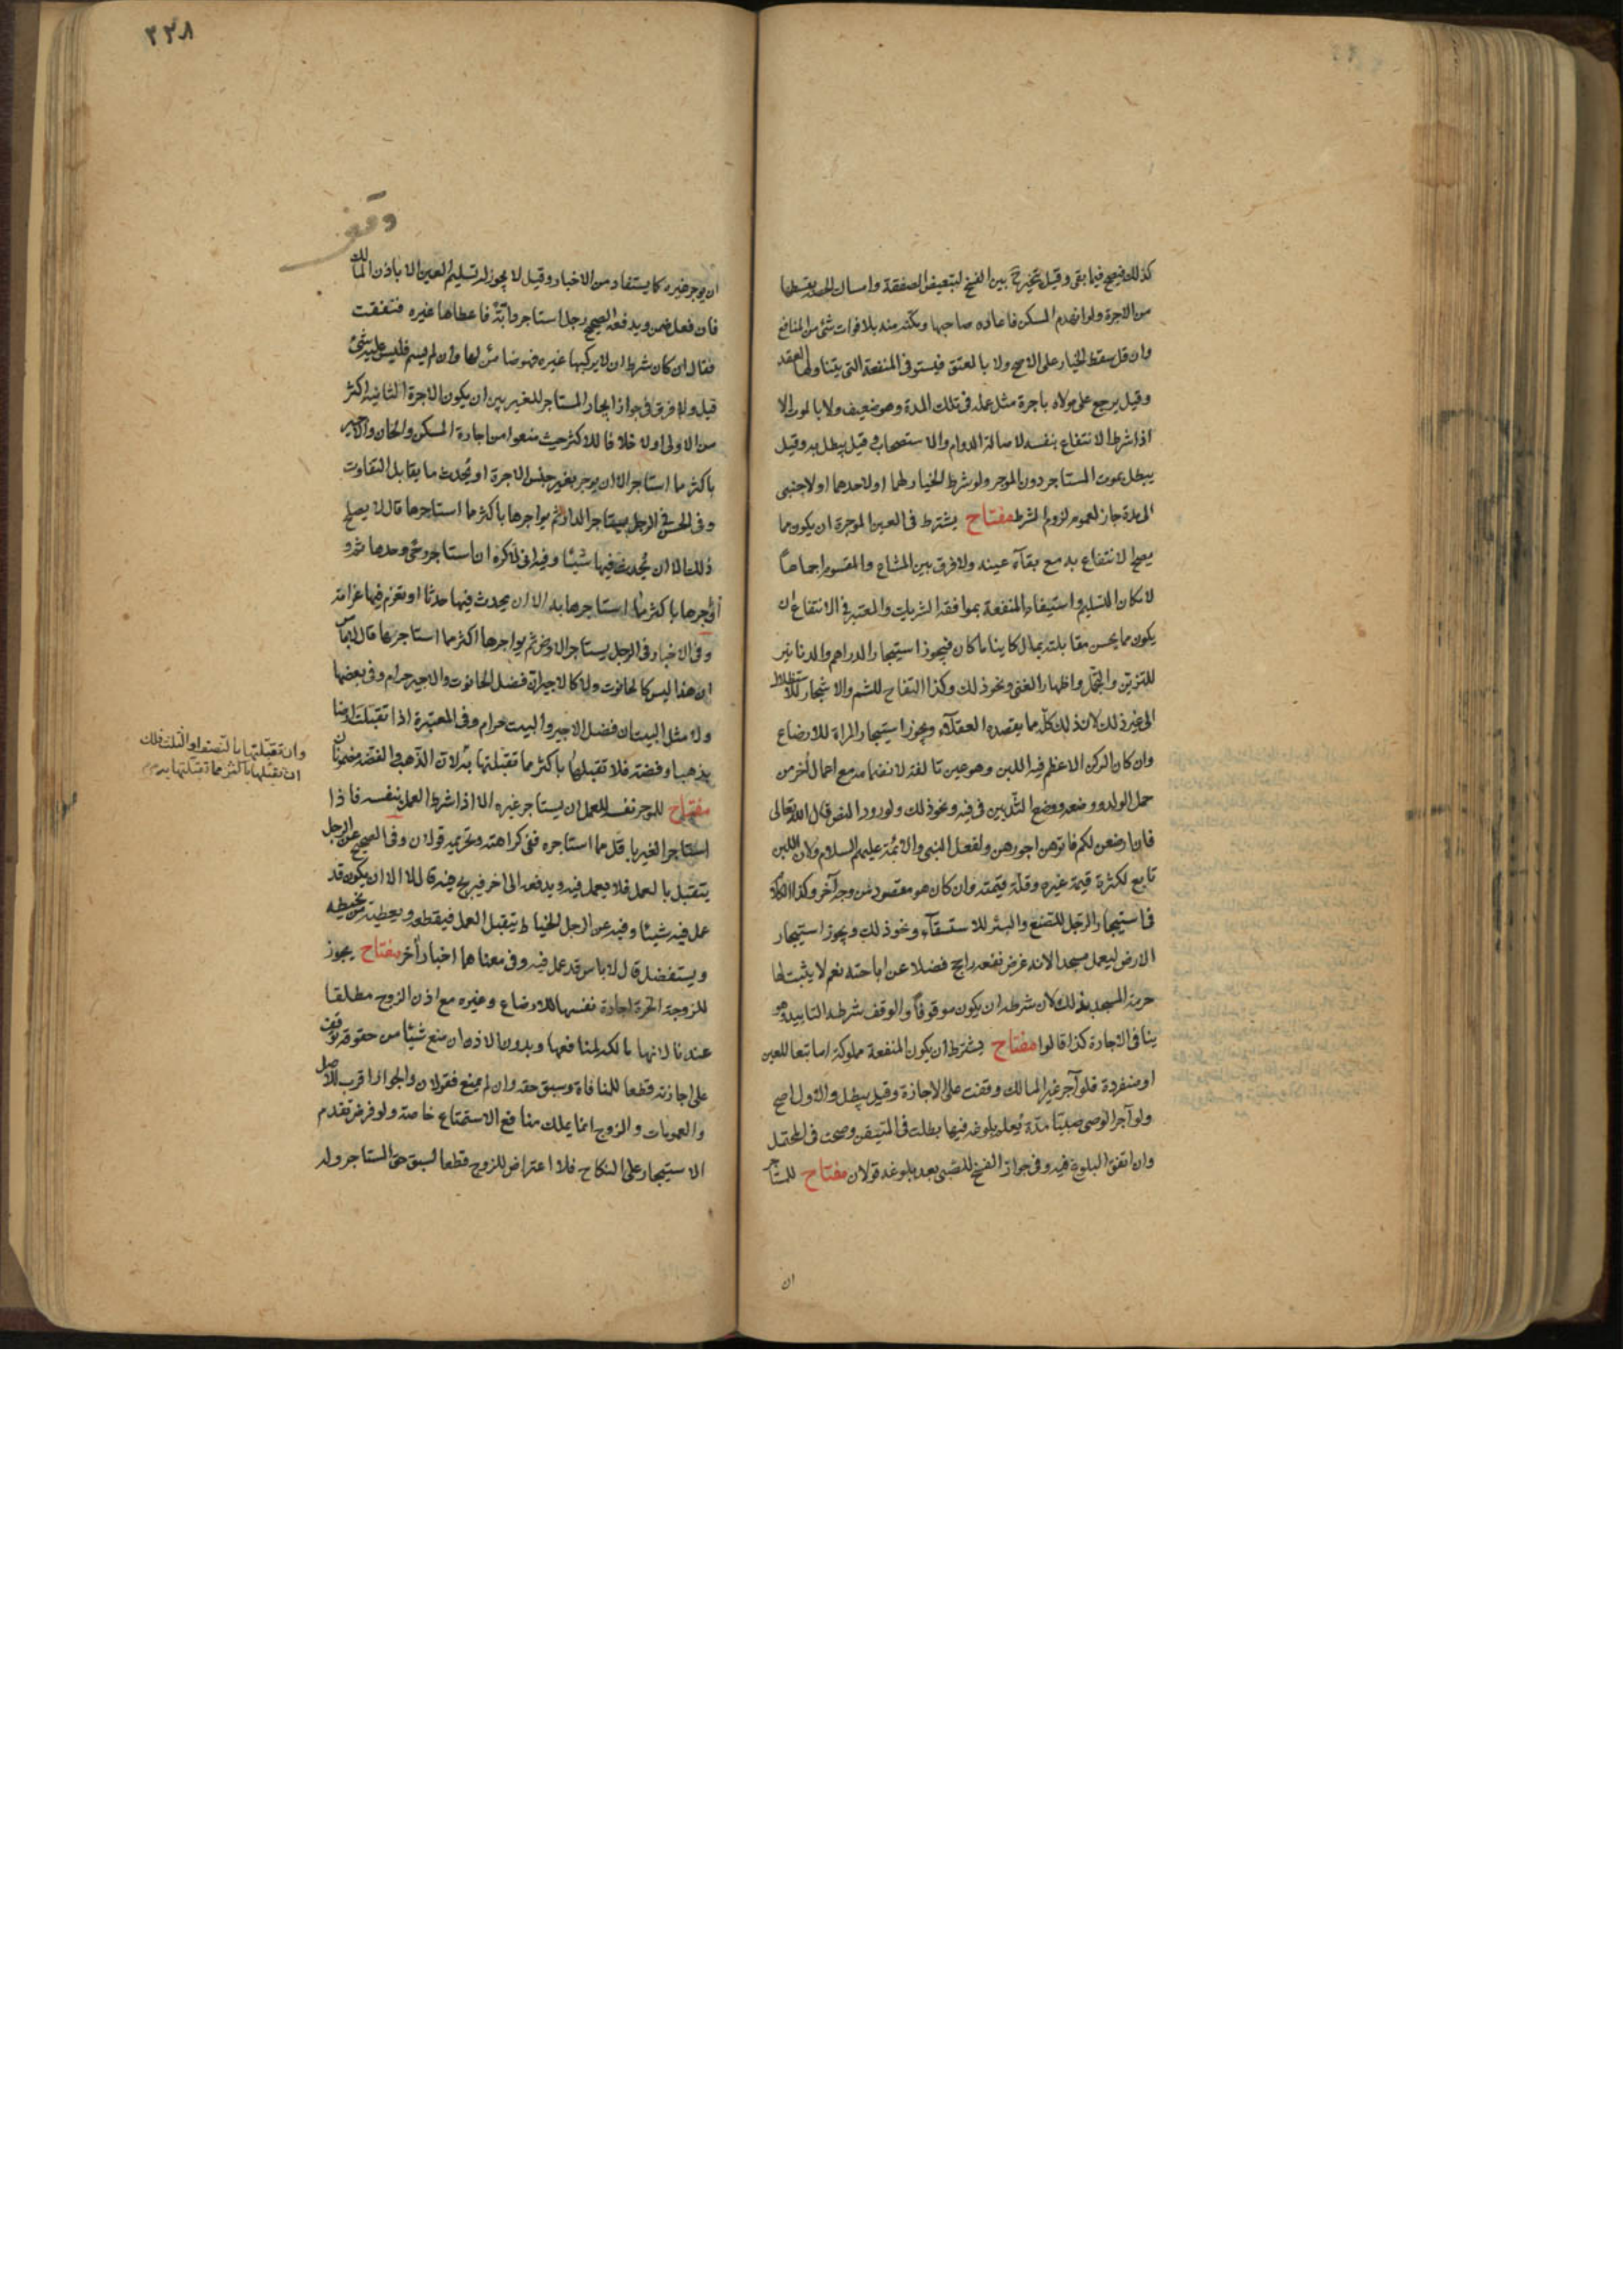 كذلك فيصح فيما بقى وقيل يتخير بين الفسخ لتبعيض الصفقة وامساك الحصة بقسطها
من الاجرة ولو انهدم المسكن فاعاده صاحبها ومكنه منه بلا فوات شئ من المنافع
وان قل سقط الخيار على الاصح ولا بالعتق فيستوفى المنفعة التى يتناولها العقد
وقيل يرجع على مولاه باجرة مثل عمله فى تلك المدة وهو ضعيف ولا بالموت الا
اذا شرط الانتفاع بنفسه لاصالة الدوام والاستصحاب وقيل يبطل به وقيل
يبطل بموت المستاجر دون الموجر ولو شرط الخيار لهما او لاحدهما او لاجنبى
الى مدة جاز لعموم لزوم الشرط مفتاح يشترط فى العين الموجرة ان يكون مما
يصح الانتفاع به مع بقآء عينه ولا فرق بين المشاع والمقسوم اجماعاً
لامكان التسليم واستيفاء المنفعة بموافقة الشريك والمعتبر فى الانتفاع ان
يكون مما يحسن مقابلته بمال كاينا ما كان فيجوز استيجار الدراهم والدنانير
للتزين والتجمل واظهار الغنى ونحو ذلك وكذا التفاح للشم والاشجار للاستظلال
الى غير ذلك لان ذلك كله مما يقصده العقلآء ويجوز استيجار المراة للارضاع
وان كان الركن الاعظم فيه اللبن وهو عين تالفة لانضمامه مع اعمال اخر من
حمل الولد ووضعه ووضع الثديين فى فيه ونحو ذلك ولورود النص قال الله تعالى
فان ارضعن لكم فاتوهن اجورهن ولفعل النبى والائمة عليهم السلام ولان اللبن
تابع لكثرة قيمة غيره وقلة قيمته وان كان هو مقصود من وجه آخر وكذا الكلام
فى استيجار الرجل للتصنع والبئر للاستسقآء ونحو ذلك ويجوز استيجار
الارض ليعمل مسجدا لانه غرض نفعه رايج فضلا عن اباحته نعم لا يثبت لها
حرمة المسجد بذلك لان شرطه ان يكون موقوفاً والوقف شرطه التابيد وهو
ينافى الاجارة كذا قالوا مفتاح يشترط ان يكون المنفعة مملوكة اما تبعا للعين
او منفردة فلو آجر غير المالك وقفت على الاجازة وقيل يبطل والاول اصح
ولو آجر الوصى صبيّا مدّة يُعلم بلوغه فيها بطلت فى المتيقن وصحت فى المحتمل
وان اتفق البلوغ فيه وفى جواز الفسخ للصّبى بعد بلوغه قولان مفتاح للمستاجر
ان
٢٣٨
وقف
ان يوجر غيره كما يستفاد من الاخبار وقيل لا يجوز له تسليم العين الا باذن المالك
فان فعل ضمن ويدفعه الصحيح رجل استاجر دابّة فاعطاها غيره فنفقت
فقال ان كان شرط ان لا يركبها غيره فهو ضامن لها وان لم يسم فليس عليه شئ
قيل ولا فرق فى جواز ايجار المستاجر للغير بين ان يكون الاجرة الثانية اكثر
من الاولى او لا خلافا للاكثر حيث منعوا من اجارة المسكن والخان والاجير
باكثر مما استاجر الا ان يوجر بغير جنس الاجرة او يُحدث ما يقابل التفاوت
وفى الحسن فى الرجل يستاجر الدار ثم يواجرها باكثر مما استاجرها قال لا يصلح
ذلك الا ان يُحدث فيها شيئا وفيه انى لاكره ان استاجر رحى وحدها ثم
أؤجرها باكثر مما استاجرها به الا ان يحدث فيها حدثا او تغرم فيها غرامة
وفى الاخبار فى الرجل يستاجر الارض ثم يواجرها اكثر مما استاجرها قال لا باس
ان هذا ليس كالحانوت ولا كالاجير ان فضل الحانوت والاجير حرام وفى بعضها
ولا مثل البيت ان فضل الاجير والبيت حرام وفى المعتبرة اذا تقبّلت ارضا
بذهب او فضة فلا تقبلها باكثر مما تقبّلتها به لان الذّهب والفضّة مضمونان
وان تقبّلتها بالنّصف او الثلث فلك
ان تقبّلها باكثر مما تقبّلتها به
مفتاح للموجر نفسه للعمل ان يستاجر غيره الا اذا شرط العمل بنفسه فاذا
استاجر الغير باقل مما استاجره ففى كراهته وتحريمه قولان وفى الصحيح عن الرجل
يتقبل بالعمل فلا يعمل فيه ويدفعه الى اخر فيربح فيه قال لا الا ان يكون قد
عمل فيه شيئا وفيه عن الرجل الخياط يتقبل العمل فيقطعه ويعطيه من يخيطه
ويستفضل قال لا باس قد عمل فيه وفى معناهما اخبار أخر مفتاح يجوز
للزوجة الحرة اجارة نفسها للارضاع وغيره مع اذن الزوج مطلقا
عندنا لانها مالكة لمنافعها وبدون الاذن ان منع شيئا من حقوقه توقف
على اجازته قطعا للمنافاة وسبق حقه وان لم يمنع فقولان والجواز اقرب للاصل
والعمومات والزوج انما يملك منافع الاستمتاع خاصة ولو فرض تقدم
الاستيجار على النكاح فلا اعتراض للزوج قطعا لسبق حق المستاجر وله